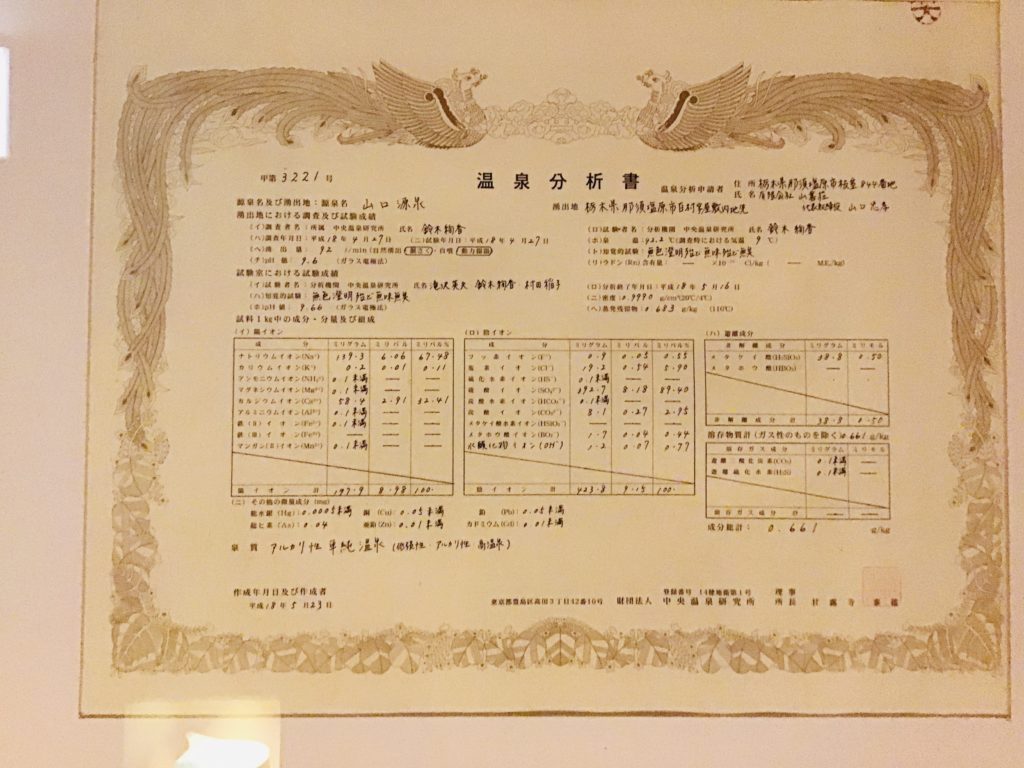 甲第 3221 号
温泉分析書
温泉分析申請者 住所 栃木県那須塩原市板室844番地
氏名 有限会社 山喜荘
代表取締役 山口忠孝
源泉名及び湧出地:源泉名 山口源泉 湧出地 栃木県那須塩原市百村字屋敷内地先
湧出地における調査及び試験成績
(イ)調査者名:所属 中央温泉研究所 氏名 鈴木絢香 (ロ)試験者名:分析機関 中央温泉研究所 氏名 鈴木絢香
(ハ)調査年月日:平成18年4月27日 (ニ)試験年月日:平成18年4月27日 (ホ)泉温:42.2℃(調査時における気温 9℃)
(ヘ)湧出量: 92 l/min(自然湧出・掘さく・自噴・動力揚湯) (ト)知覚的試験:無色澄明殆ど無味無臭
(チ)pH値:9.6 (ガラス電極法) (リ)ラドン(Rn)含有量:—— ×10 Ci/kg ( —— M.E./kg)
試験室における試験成績
(イ)試験者名:分析機関 中央温泉研究所 氏名 滝沢英夫 鈴木絢香 村田裕子 (ロ)分析終了年月日:平成18年5月16日
(ハ)知覚的試験:無色澄明殆ど無味無臭 (ニ)密度:0.9990 g/cm³(20℃/4℃)
(ホ)pH値:9.66 (ガラス電極法) (ヘ)蒸発残留物:0.683 g/kg (110℃)
試料1kg中の成分・分量及び組成
(イ)陽イオン
成分 ミリグラム ミリバル ミリバル%
ナトリウムイオン(Na⁺) 139.3 6.06 67.48
カリウムイオン(K⁺) 0.2 0.01 0.11
アンモニウムイオン(NH₄⁺) 0.1未満 —— ——
マグネシウムイオン(Mg²⁺) 0.1未満 —— ——
カルシウムイオン(Ca²⁺) 58.4 2.91 32.41
アルミニウムイオン(Al³⁺) 0.1未満 —— ——
鉄(Ⅱ)イオン(Fe²⁺) 0.1未満 —— ——
鉄(Ⅲ)イオン(Fe³⁺) —— —— ——
マンガン(Ⅱ)イオン(Mn²⁺) 0.1未満 —— ——
陽イオン計 197.9 8.98 100.
(ロ)陰イオン
成分 ミリグラム ミリバル ミリバル%
フッ素イオン(F⁻) 0.9 0.05 0.55
塩素イオン(Cl⁻) 19.2 0.54 5.90
硫化水素イオン(HS⁻) 0.1未満 —— ——
硫酸イオン(SO₄²⁻) 392.7 8.18 89.40
炭酸水素イオン(HCO₃⁻) 0.1未満 —— ——
炭酸イオン(CO₃²⁻) 8.1 0.27 2.95
メタケイ酸水素イオン(HSiO₃⁻) —— —— ——
メタホウ酸イオン(BO₂⁻) 1.7 0.04 0.44
水酸化物イオン(OH⁻) 1.2 0.07 0.77
陰イオン計 423.8 9.15 100.
(ハ)遊離成分
非解離成分 ミリグラム ミリモル
メタケイ酸(H₂SiO₃) 38.8 0.50
メタホウ酸(HBO₂) —— ——
非解離成分計 38.8 0.50
溶存物質計(ガス性のものを除く)0.661 g/kg
溶存ガス成分 ミリグラム ミリモル
遊離二酸化炭素(CO₂) 0.1未満 ——
遊離硫化水素(H₂S) 0.1未満 ——
溶存ガス成分計 —— ——
成分総計: 0.661 g/kg
(ニ)その他の微量成分(mg)
総水銀(Hg):0.0005未満 銅(Cu):0.05未満 鉛(Pb):0.05未満
総ヒ素(As):0.04 亜鉛(Zn):0.01未満 カドミウム(Cd):0.01未満
泉質 アルカリ性単純温泉(低張性・アルカリ性・高温泉)
作成年月日及び作成者
平成18年5月23日
登録番号 14健地衛第1号
東京都豊島区高田3丁目42番10号 財団法人 中央温泉研究所 理事所長 甘露寺泰雄